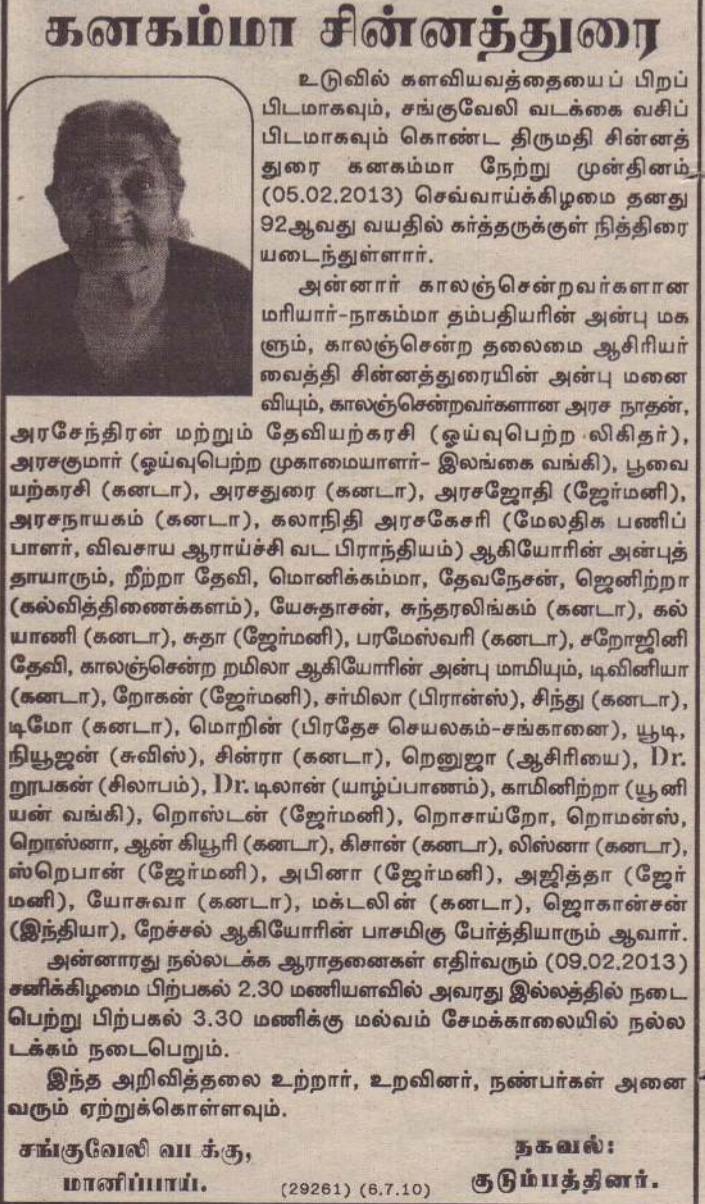 கனகம்மா சின்னத்துரை
உடுவில் களவியவத்தையைப் பிறப்
பிடமாகவும், சங்குவேலி வடக்கை வசிப்
பிடமாகவும் கொண்ட திருமதி சின்னத்
துரை கனகம்மா நேற்று முன்தினம்
(05.02.2013) செவ்வாய்க்கிழமை தனது
92ஆவது வயதில் கர்த்தருக்குள் நித்திரை
யடைந்துள்ளார்.
அன்னார் காலஞ்சென்றவர்களான
மரியார்-நாகம்மா தம்பதியரின் அன்பு மக
ளும், காலஞ்சென்ற தலைமை ஆசிரியர்
வைத்தி சின்னத்துரையின் அன்பு மனை
வியும், காலஞ்சென்றவர்களான அரச நாதன்,
அரசேந்திரன் மற்றும் தேவியற்கரசி (ஓய்வுபெற்ற லிகிதர்),
அரசகுமார் (ஓய்வுபெற்ற முகாமையாளர்- இலங்கை வங்கி), பூவை
யற்கரசி (கனடா), அரசதுரை (கனடா), அரசஜோதி (ஜேர்மனி),
அரசநாயகம் (கனடா), கலாநிதி அரசகேசரி (மேலதிக பணிப்
பாளர், விவசாய ஆராய்ச்சி வட பிராந்தியம்) ஆகியோரின் அன்புத்
தாயாரும், றீற்றா தேவி, மொனிக்கம்மா, தேவநேசன், ஜெனிற்றா
(கல்வித்திணைக்களம்), யேசுதாசன், சுந்தரலிங்கம் (கனடா), கல்
யாணி (கனடா), சுதா (ஜேர்மனி), பரமேஸ்வரி (கனடா), சறோஜினி
தேவி, காலஞ்சென்ற றமிலா ஆகியோரின் அன்பு மாமியும், டிவினியா
(கனடா), றோகன் (ஜேர்மனி), சர்மிலா (பிரான்ஸ்), சிந்து (கனடா),
டிமோ (கனடா), மொறின் (பிரதேச செயலகம்-சங்கானை), யூடி,
நியூஜன் (சுவிஸ்), சின்ரா (கனடா), றெனுஜா (ஆசிரியை), Dr.
றூபகன் (சிலாபம்), Dr. டிலான் (யாழ்ப்பாணம்), காமினிற்றா (யூனி
யன் வங்கி), றொஸ்டன் (ஜேர்மனி), றொசாய்றோ, றொமன்ஸ்,
றொஸ்னா, ஆன் கியூரி (கனடா), கிசான் (கனடா), லிஸ்னா (கனடா),
ஸ்றெபான் (ஜேர்மனி), அபினா (ஜேர்மனி), அஜித்தா (ஜேர்
மனி), யோசுவா (கனடா), மக்டலின் (கனடா), ஜொகான்சன்
(இந்தியா), றேச்சல் ஆகியோரின் பாசமிகு பேர்த்தியாரும் ஆவார்.
அன்னாரது நல்லடக்க ஆராதனைகள் எதிர்வரும் (09.02.2013)
சனிக்கிழமை பிற்பகல் 2.30 மணியளவில் அவரது இல்லத்தில் நடை
பெற்று பிற்பகல் 3.30 மணிக்கு மல்வம் சேமக்காலையில் நல்ல
டக்கம் நடைபெறும்.
இந்த அறிவித்தலை உற்றார், உறவினர், நண்பர்கள் அனை
வரும் ஏற்றுக்கொள்ளவும்.
சங்குவேலி வடக்கு,
மானிப்பாய்.
(29261) (6.7.10)
தகவல்:
குடும்பத்தினர்.